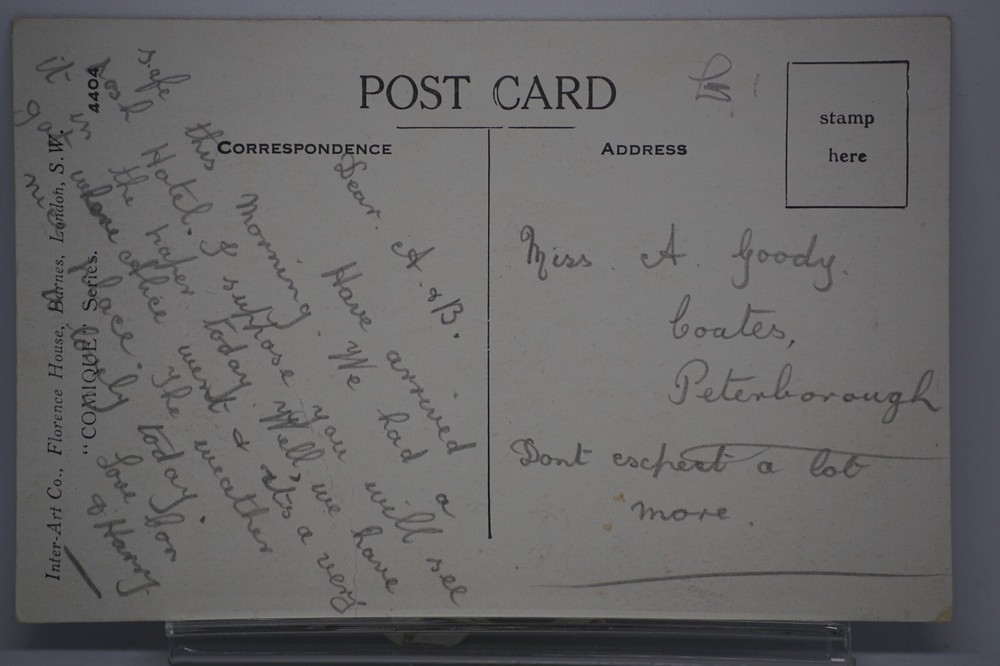 POST CARD
CORRESPONDENCE
ADDRESS
stamp
here
Dear A. & B.
Have arrived
safe this Morning. We had a
posh Hotel. I suppose you will see
it in the paper today. Well, we have
got where Alice went & its a very
nice place. The weather
lovely today.
Love
& Harry
Miss A Goody.
Coates,
Peterborough
Dont exspect a lot
more.
Inter-Art Co., Florence House, Barnes, London, S.W.
"COMIQUE" Series.
4404